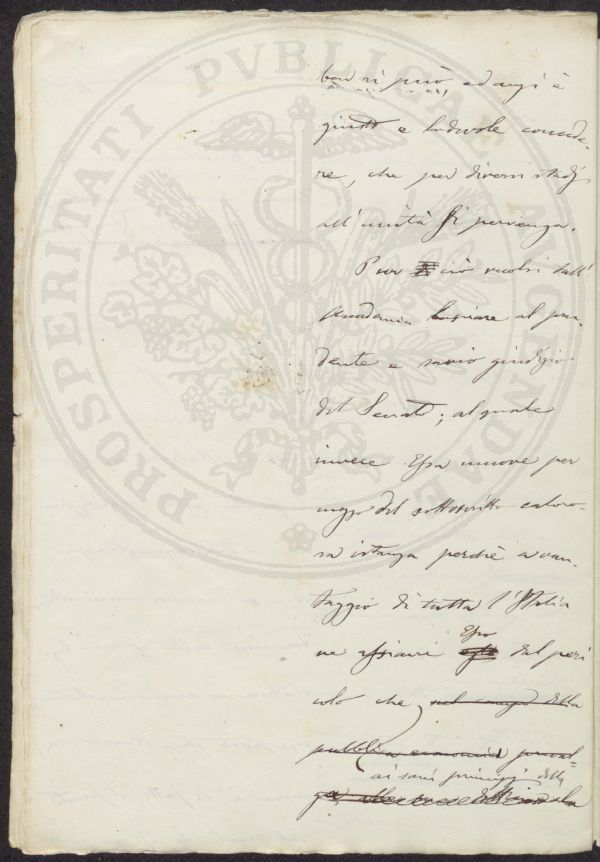 PROSPERITATI PVBLICAE AVGENDAE
ben si può ed anzi è
giusto e lodevole concede-
re, che per diversi studj
all'unità si pervenga.
Pur ciò vuolsi dall'
Accademia lasciare al pru-
dente e savio giudizio
del Senato; al quale
invece Essa muove per
mezzo del sottoscritto caloro-
sa istanza perchè a van-
taggio di tutta l'Italia
Esso
ne assicuri dal peri
colo che nel campo della
pubblica economia preval-
ai sani principj della
ga